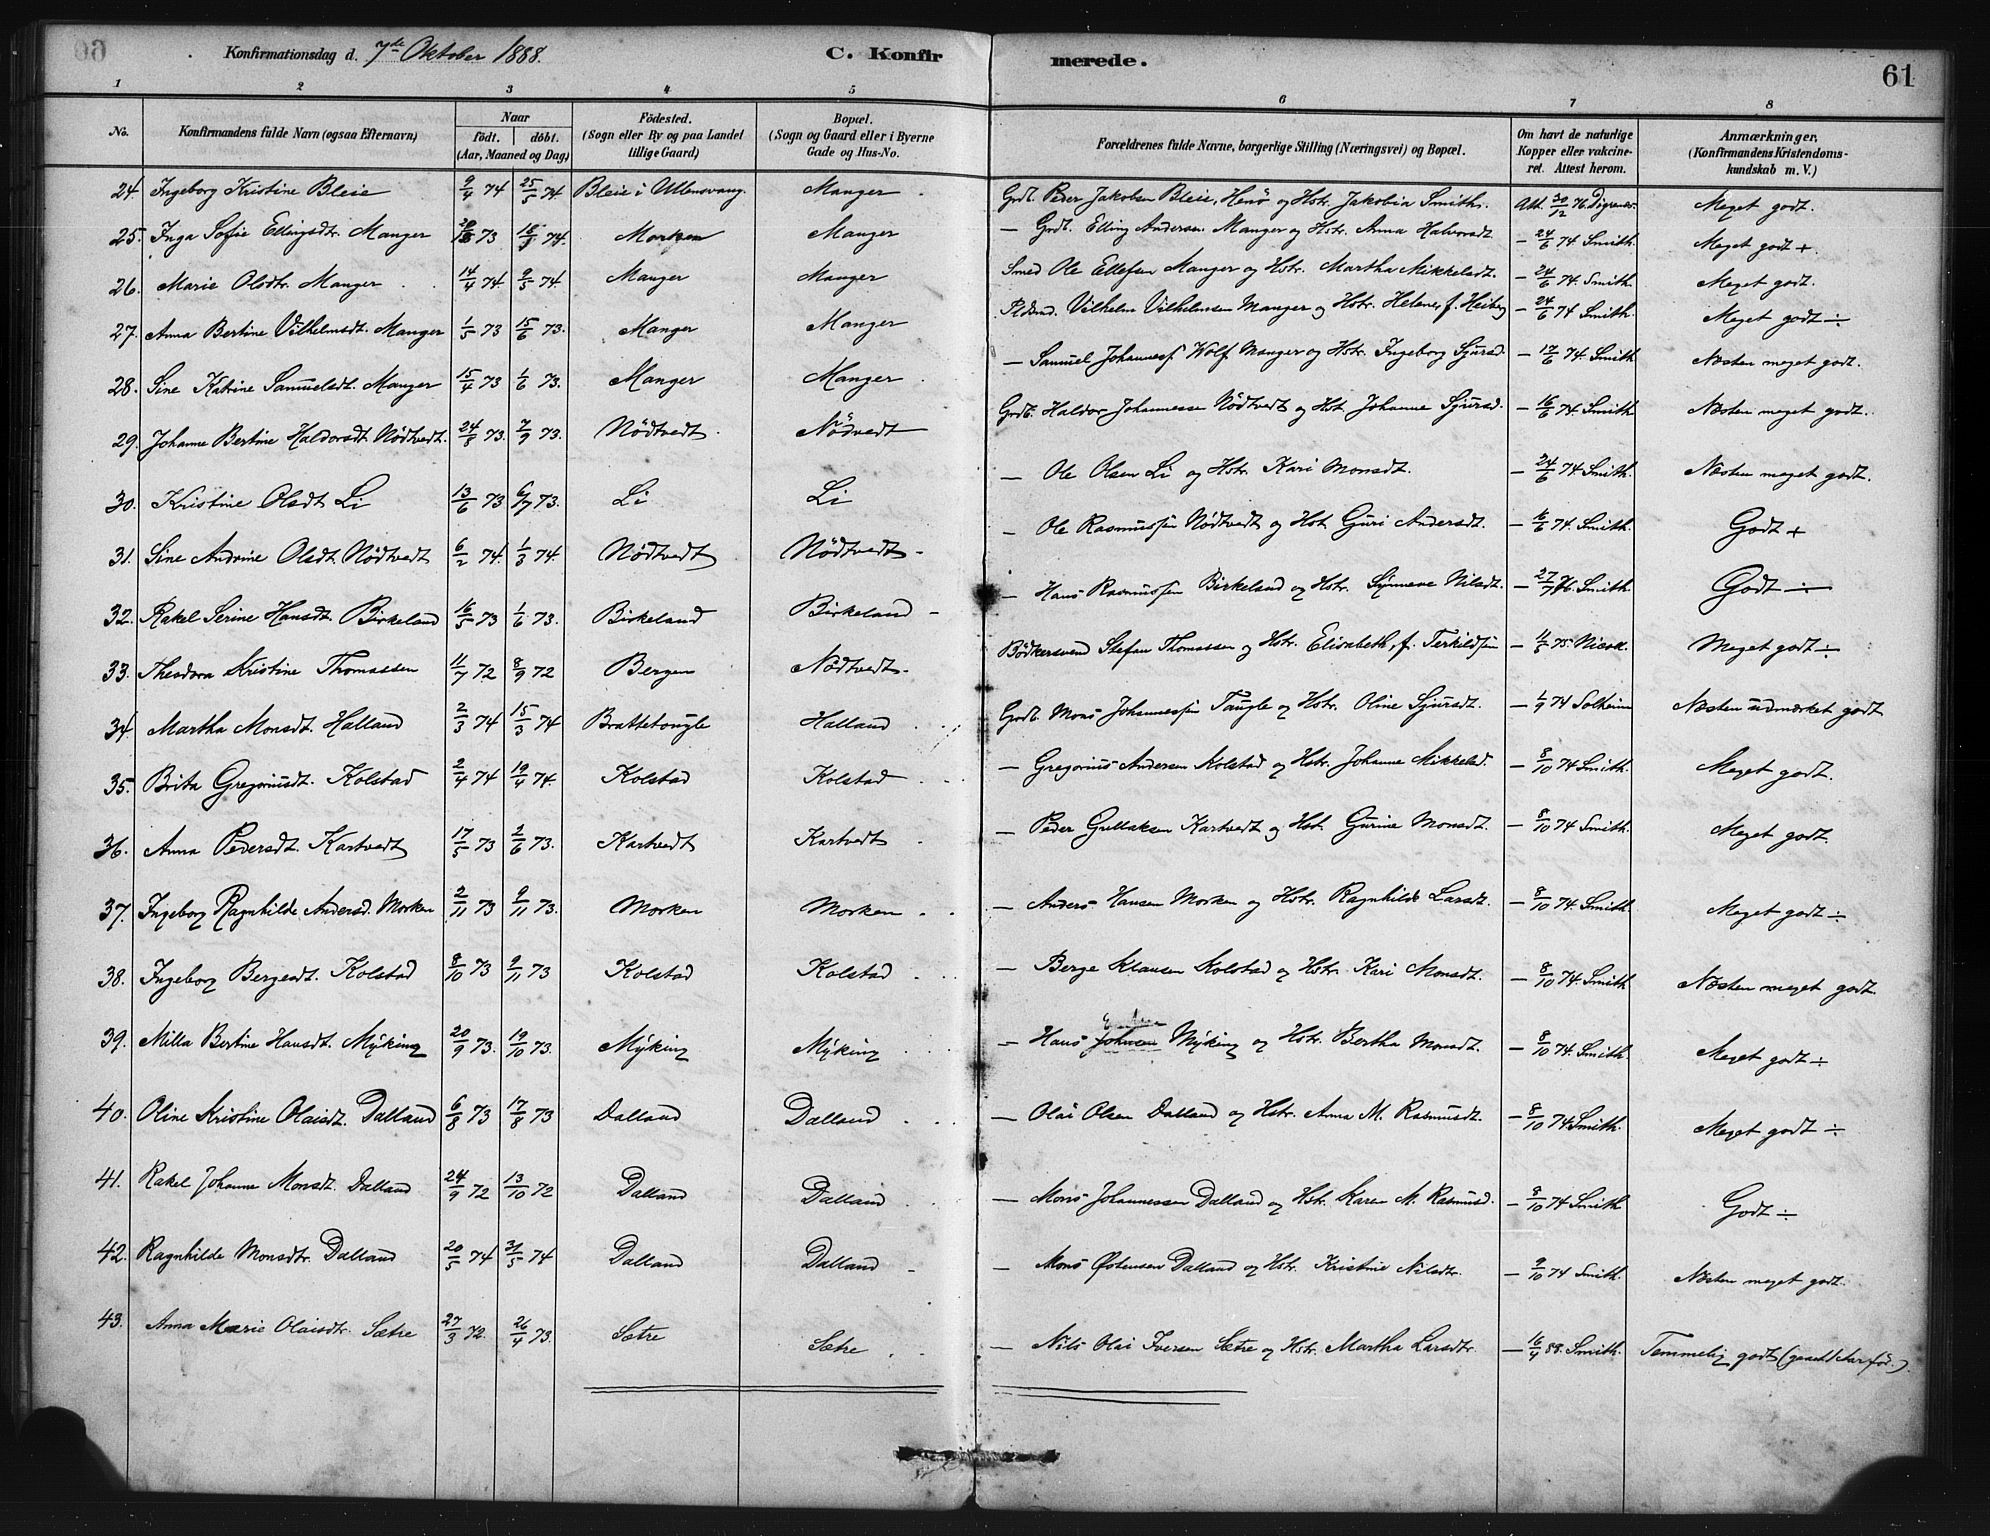 Konfirmationsdag d. 7de Oktober 1888. C. Konfirmerede. 61
1 2 3 4 5 6 7 8
No. Konfirmandens fulde Navn (ogsaa Efternavn) Naar født. døbt. (Aar, Maaned og Dag) Fødested. (Sogn eller By og paa Landet tillige Gaard) Bopæl. (Sogn og Gaard eller i Byerne Gade og Hus-No. Forældrenes fulde Navne, borgerlige Stilling (Næringsvei) og Bopæl. Om havt de naturlige Kopper eller vakcineret. Attest herom. Anmærkninger, (Konfirmandens Kristendomskundskab m. V.)
24. Ingeborg Kristine Bleie 9/4 74 25/5 74. Bleie i Ullensvang. Manger Grdb. Peder Jakobsen Bleie, Henø og Hstr. Jakobia Smith. Att. 30/12 76 Meget godt.
25. Inga Sofie Ellingsdtr. Manger 73 74. Morken Manger — Grdb. Elling Andersen Manger og Hstr. Anna Halvorsdt. — 24/6 74 Smith. Meget godt +.
26. Marie Olsdtr. Manger 14/4 74 9/5 74. Manger Manger Smed Ole Ellefsen Manger og Hstr. Martha Mikkelsdt. — 24/6 74 Smith. Meget godt.
27. Anna Bertine Vilhelmsdt. Manger 1/5 73 15/6 73. Manger Manger Vilhelm Vilhelmsen Manger og Hstr. Helene, f. Heiberg — 24/6 74 Smith. Meget godt ÷
28. Sine Katrine Samuelsdt. Manger 15/4 73 1/6 73. Manger Manger — Samuel Johannesf Wolf Manger og Hstr. Ingeborg Sjursd. — 17/6 74. Smith Næsten meget godt.
29. Johanne Bertine Haldorsdt Nödtvedt. 24/8 73. 7/9 73. Nödtvedt. Nödvedt Grdb. Haldor Johannessen Nödtvedt og Hst. Johanne Sjursd. — 16/6 74 Smith. Næsten meget godt.
30. Kristine Olsdt Li 13/6 73 6/7 73. Li Li — Ole Olsen Li og Hstr. Kari Monsdt. — 24/6 74 Smith. Næsten meget godt.
31. Sine Andrine Olsdt. Nödtvedt 6/2 74. 1/3 74. Nödtvedt Nödtvedt — Ole Rasmussen Nödtvedt og Hst. Guri Andersdt. — 6/6 74. Smith. Godt +
32. Rakel Serine Hansdt. Birkeland 16/5 73 1/6 73. Birkeland Birkeland — Hans Rasmussen Birkeland og Hstr. Synneve Nilsdt. — 27/7 76. Smith. Godt ÷
33. Theodora Kristine Thomassen 11/7 72 8/9 72 Bergen Nödtvedt. Bödkersvend Stefan Thomassen og Hstr. Elisabeth, f. Terkildsen — 75. Meget godt ÷
34. Martha Monsdt. Halland 2/3 74 15/3 74 Brattetougle Halland Grdb. Mons Johannessen Taugle og Hstr. Oline Sjursdt. — 1/9 74 Solheim Næsten udmærket godt
35. Brita Gregoriusdt. Kolstad 2/4 74 19/4 74. Kolstad Kolstad — Gregorius Andersen Kolstad og Hstr. Johanne Mikkelsd. — 8/10 74 Smith. Meget godt.
36. Anna Pedersdt. Kartvedt 17/5 73 2/6 73. Kartvedt Kartvedt — Peder Gullaksen Kartvedt og Hst. Gurine Monsdt. — 8/10 74 Smith. Meget godt.
37. Ingeborg Ragnhilde Andersd. Morken 2/11 73 9/11 73. Morken Morken — Anders Hansen Morken og Hstr. Ragnhilde Larsdt. — 8/10 74 Smith. Meget godt ÷
38. Ingeborg Bergesdt. Kolstad 8/10 73 9/11 73 Kolstad Kolstad — Berge Klausen Kolstad og Hstr. Kari Monsdt. — 8/10 74. Smith Næsten meget godt.
39. Milla Bertine Hansdt. Mÿking 20/9 73. 19/10 73. Mÿking Mÿking — Hans Johnsen Mÿking og Hstr. Bertha Monsdt. — 8/10 74. Smith. Meget godt ÷
40. Oline Kristine Olaisdt. Dalland 6/8 73 17/8 73 Dalland Dalland — Olai Olsen Dalland og Hstr. Anna M. Rasmusdt. — 8/10 74 Smith. Meget godt ÷
41. Rakel Johanne Monsdt. Dalland 24/9 72 13/10 72 Dalland Dalland — Mons Johannessen Dalland og Hstr. Karen M. Rasmusd. — 8/10 74 Smith Godt ÷
42. Ragnhilde Monsdtr. Dalland 20/5 74 31/5 74 Dalland Dalland — Mons Østensen Dalland og Hstr. Kristine Nilsdtr. — 9/10 74 Smith. Næsten meget godt.
43. Anna Marie Olaisdtr. Sætre 27/3 72. 26/4 73. Sætre Sætre — Nils Olai Iversen Sætre og Hstr. Martha Larsdtr. — 16/4 88. Smith. Temmelig godt